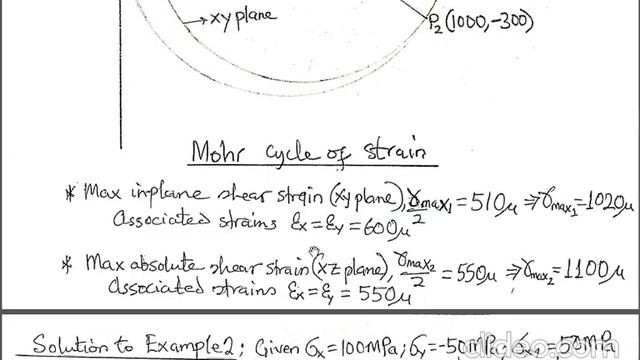 →xy plane
P₂(1000,-300)
Mohr cycle of strain
* Max inplane shear strain (xy plane), γmax₁/2 = 510μ ⇒ γmax₁ = 1020μ
Associated strains εx = εy = 600μ
* Max absolute shear strain (xz plane), γmax₂/2 = 550μ ⇒ γmax₂ = 1100μ
Associated strains εx = εy = 550μ
Solution to Example 2; Given σx = 100MPa; σy = -50MPa, = 50MPa
clideo.com